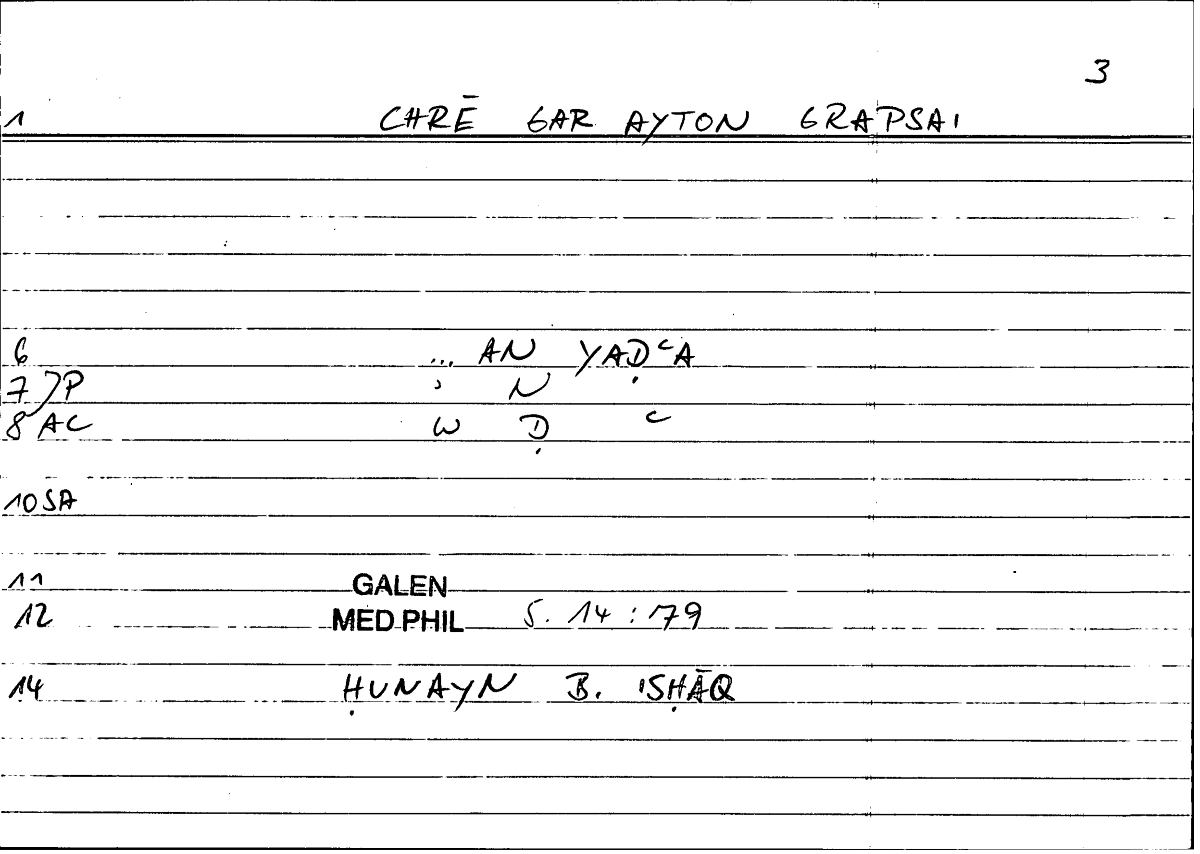 3
1 CHRĒ GAR AYTON GRAPSAI
6 ... AN YAḌʿA
7 )P ʾ N
8 AC W Ḍ ʿ
10 SA
11 GALEN
12 MED PHIL S. 14 : 179
14 ḤUNAYN B. ISḤĀQ